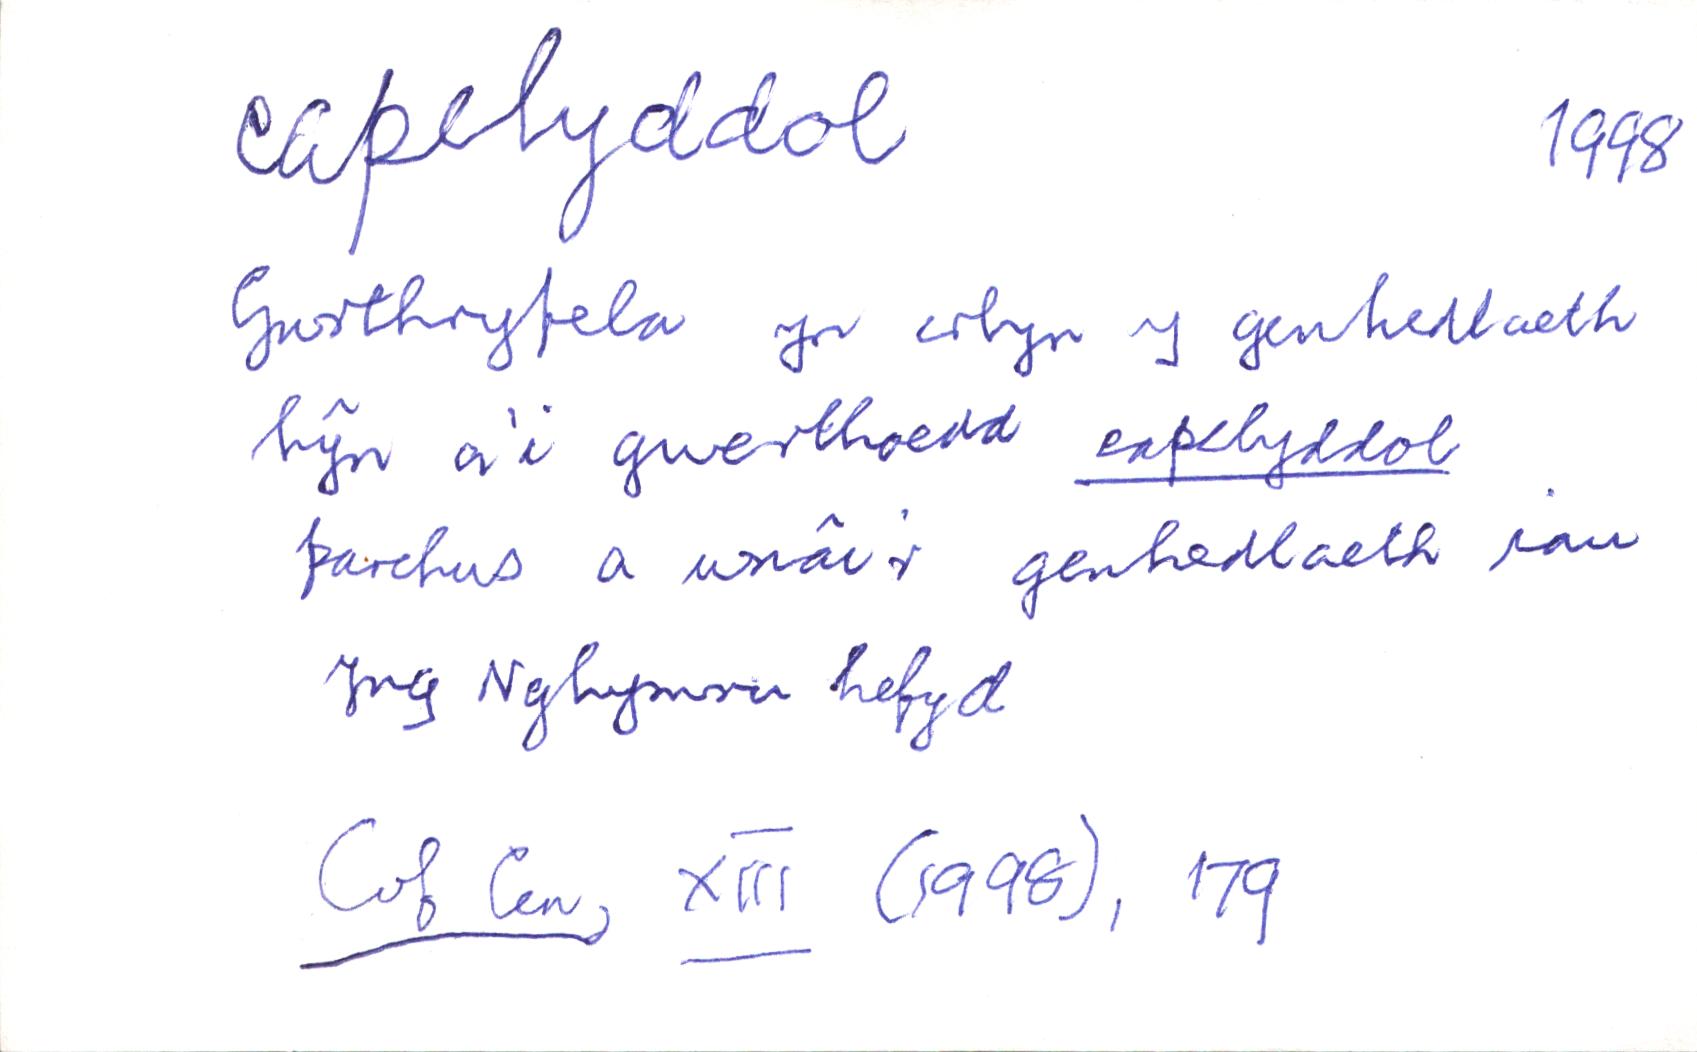 capelyddol 1998
Gwrthryfela yn erbyn y genhedlaeth
hŷn a'i gwerthoedd capelyddol
parchus a wnâi'r genhedlaeth iau
yng Nghymru hefyd
Cof Cen, XIII (1998), 179